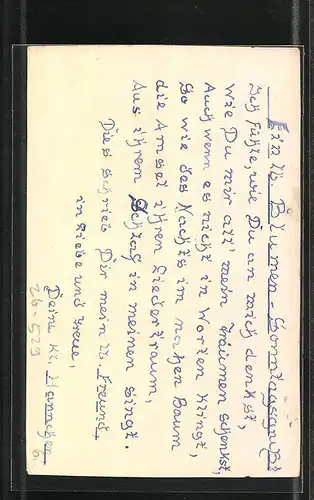 Ein lb. Blumen-Sonntagsgruß!
Ich fühle, wie Du an mich denkst,
wie Du mir all' mein Träumen schenkst,
Auch wenn es nicht in Worten klingt,
So wie des Nachts im nahen Baum
die Amsel ihren Liedertraum,
Aus ihrem Schlag in meinen singt.
Dies schrieb Dir mein lb. Freund,
in Liebe und Treue,
Deine kl. Hannchen
26-529